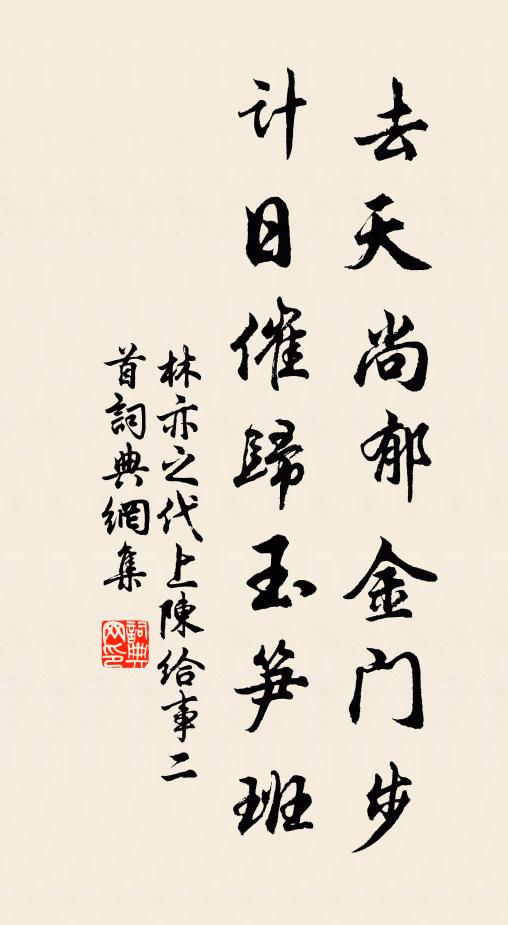 去天尚郁金门步
计日催歸玉笋班
林亦之代上陳给事二
首詞典網集
詞典
网印